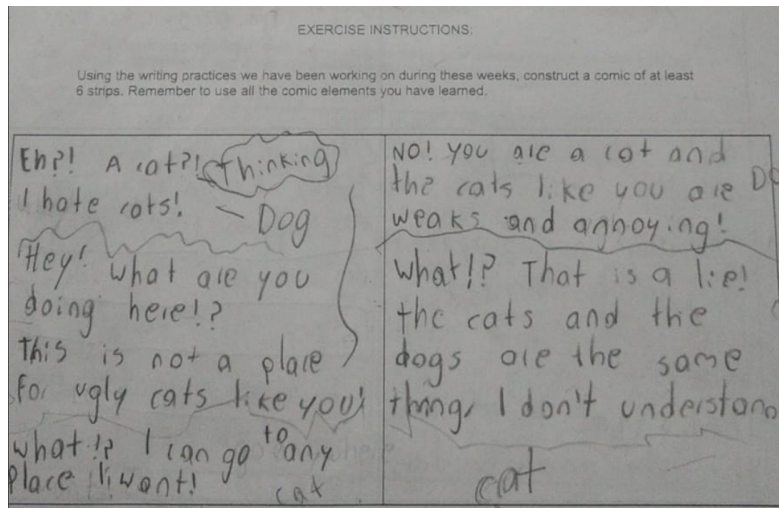 EXERCISE INSTRUCTIONS:
Using the writing practices we have been working on during these weeks, construct a comic of at least
6 strips. Remember to use all the comic elements you have learned.
Eh?! A cat?! thinking
I hate cats! - Dog
Hey! what are you
doing here!?
This is not a place
for ugly cats like you!
what!? I can go to any
place I want!
cat
NO! you are a cat and
the cats like you are
weaks and annoying!
what!? That is a lie!
the cats and the
dogs are the same
thing, I don't understand
cat